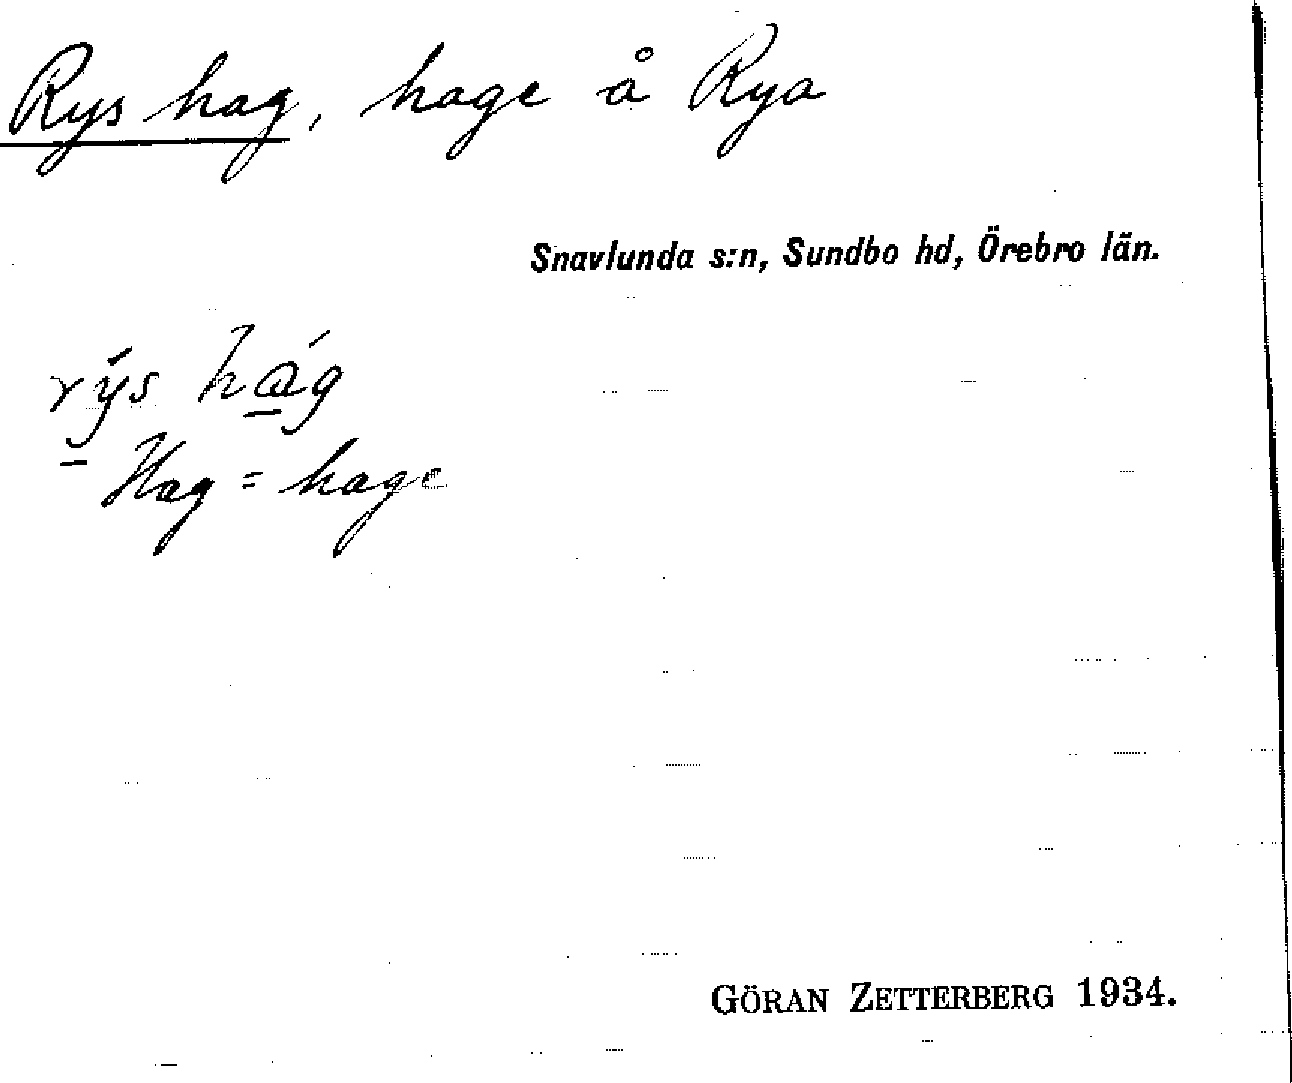 Rys hag, hage å Rya
Snavlunda s:n, Sundbo hd, Örebro län.
rýs hág
Hag = hage
GÖRAN ZETTERBERG 1934.